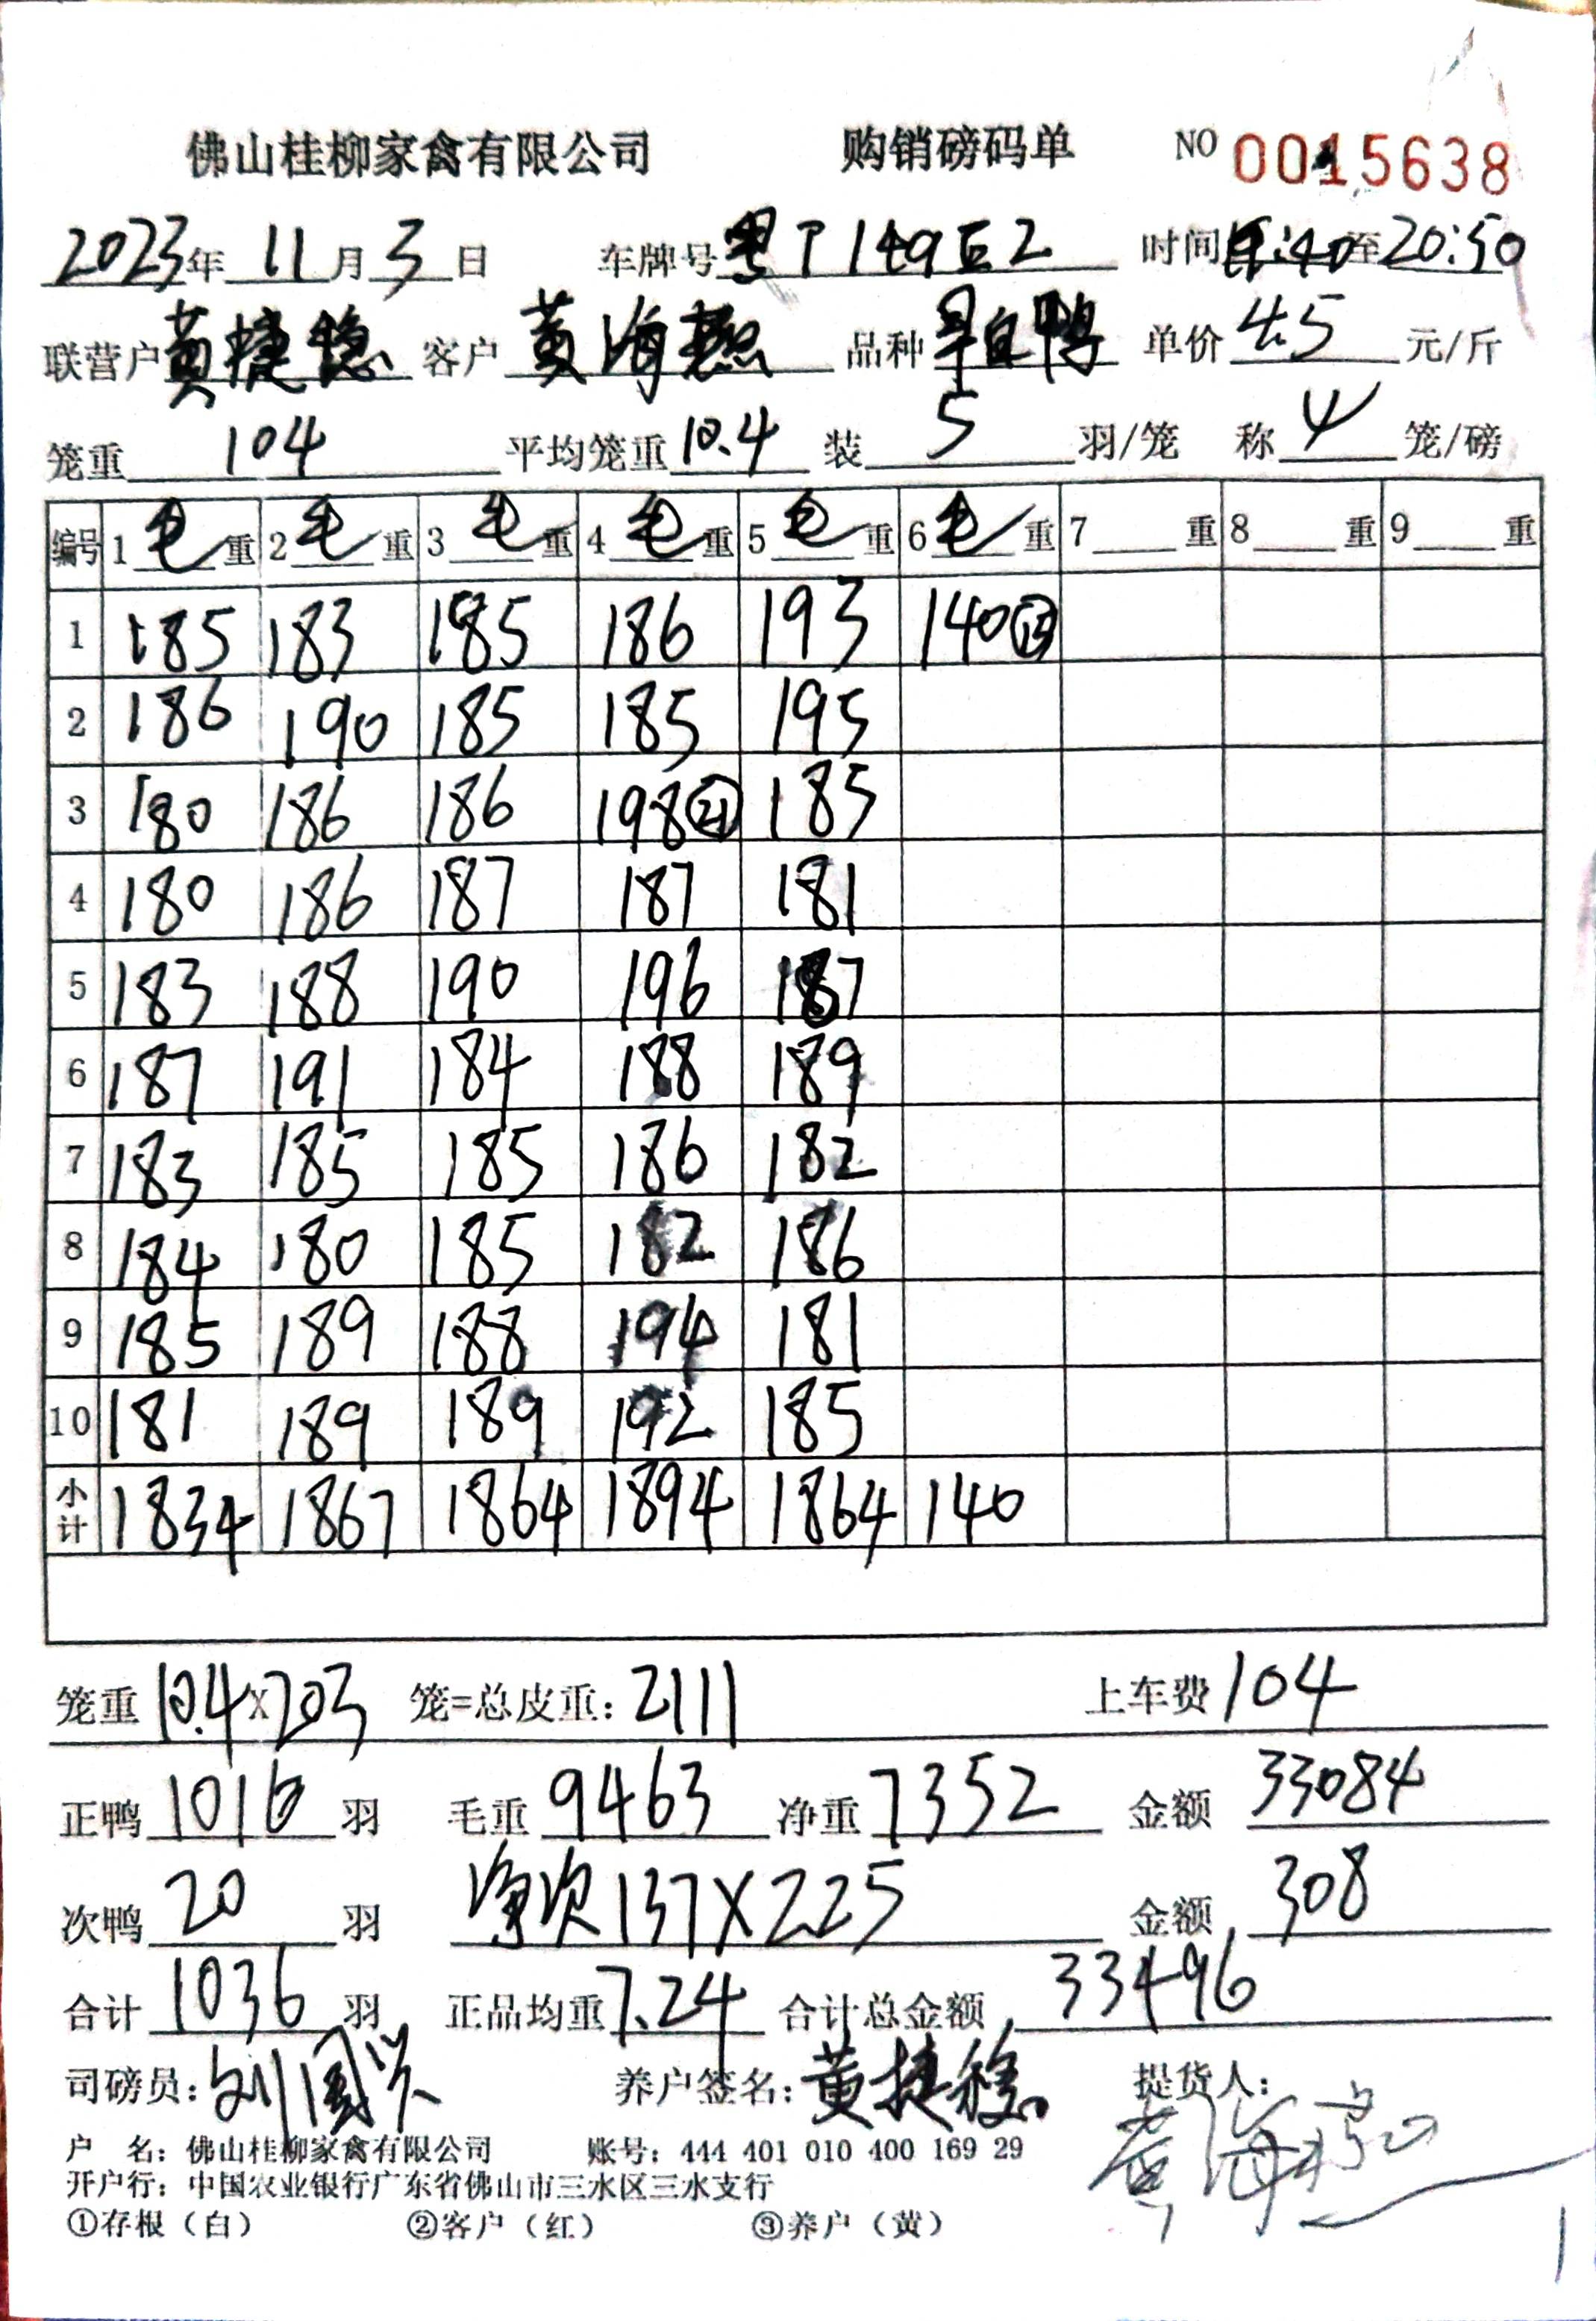 佛山桂柳家禽有限公司 购销磅码单 NO 0015638
2023年 11月 3日 车牌号 粤T149 2 时间 :40至20:50
联营户 黄捷稳 客户 黄海燕 品种 旱白鸭 单价 4.5 元/斤
笼重 104 平均笼重 10.4 装 5 羽/笼 称 4 笼/磅
编号 1毛重 2毛重 3毛重 4毛重 5毛重 6毛重 7 重 8 重 9 重
1 185 183 185 186 193 140⑮
2 186 190 185 185 195
3 180 186 186 198㉑ 185
4 180 186 187 187 181
5 183 188 190 196 187
6 187 191 184 188 189
7 183 185 185 186 182
8 184 180 185 182 186
9 185 189 188 194 181
10 181 189 189 192 185
小计 1834 1867 1864 1894 1864 140
笼重 10.4 X 203 笼=总皮重: 2111 上车费 104
正鸭 1016 羽 毛重 9463 净重 7352 金额 33084
次鸭 20 羽 净次137X2.25 金额 308
合计 1036 羽 正品均重 7.24 合计总金额 33496
司磅员: 刘国兴 养户签名: 黄捷稳 提货人: 黄海燕
户 名: 佛山桂柳家禽有限公司 账号: 444 401 010 400 169 29
开户行: 中国农业银行广东省佛山市三水区三水支行
①存根（白） ②客户（红） ③养户（黄）